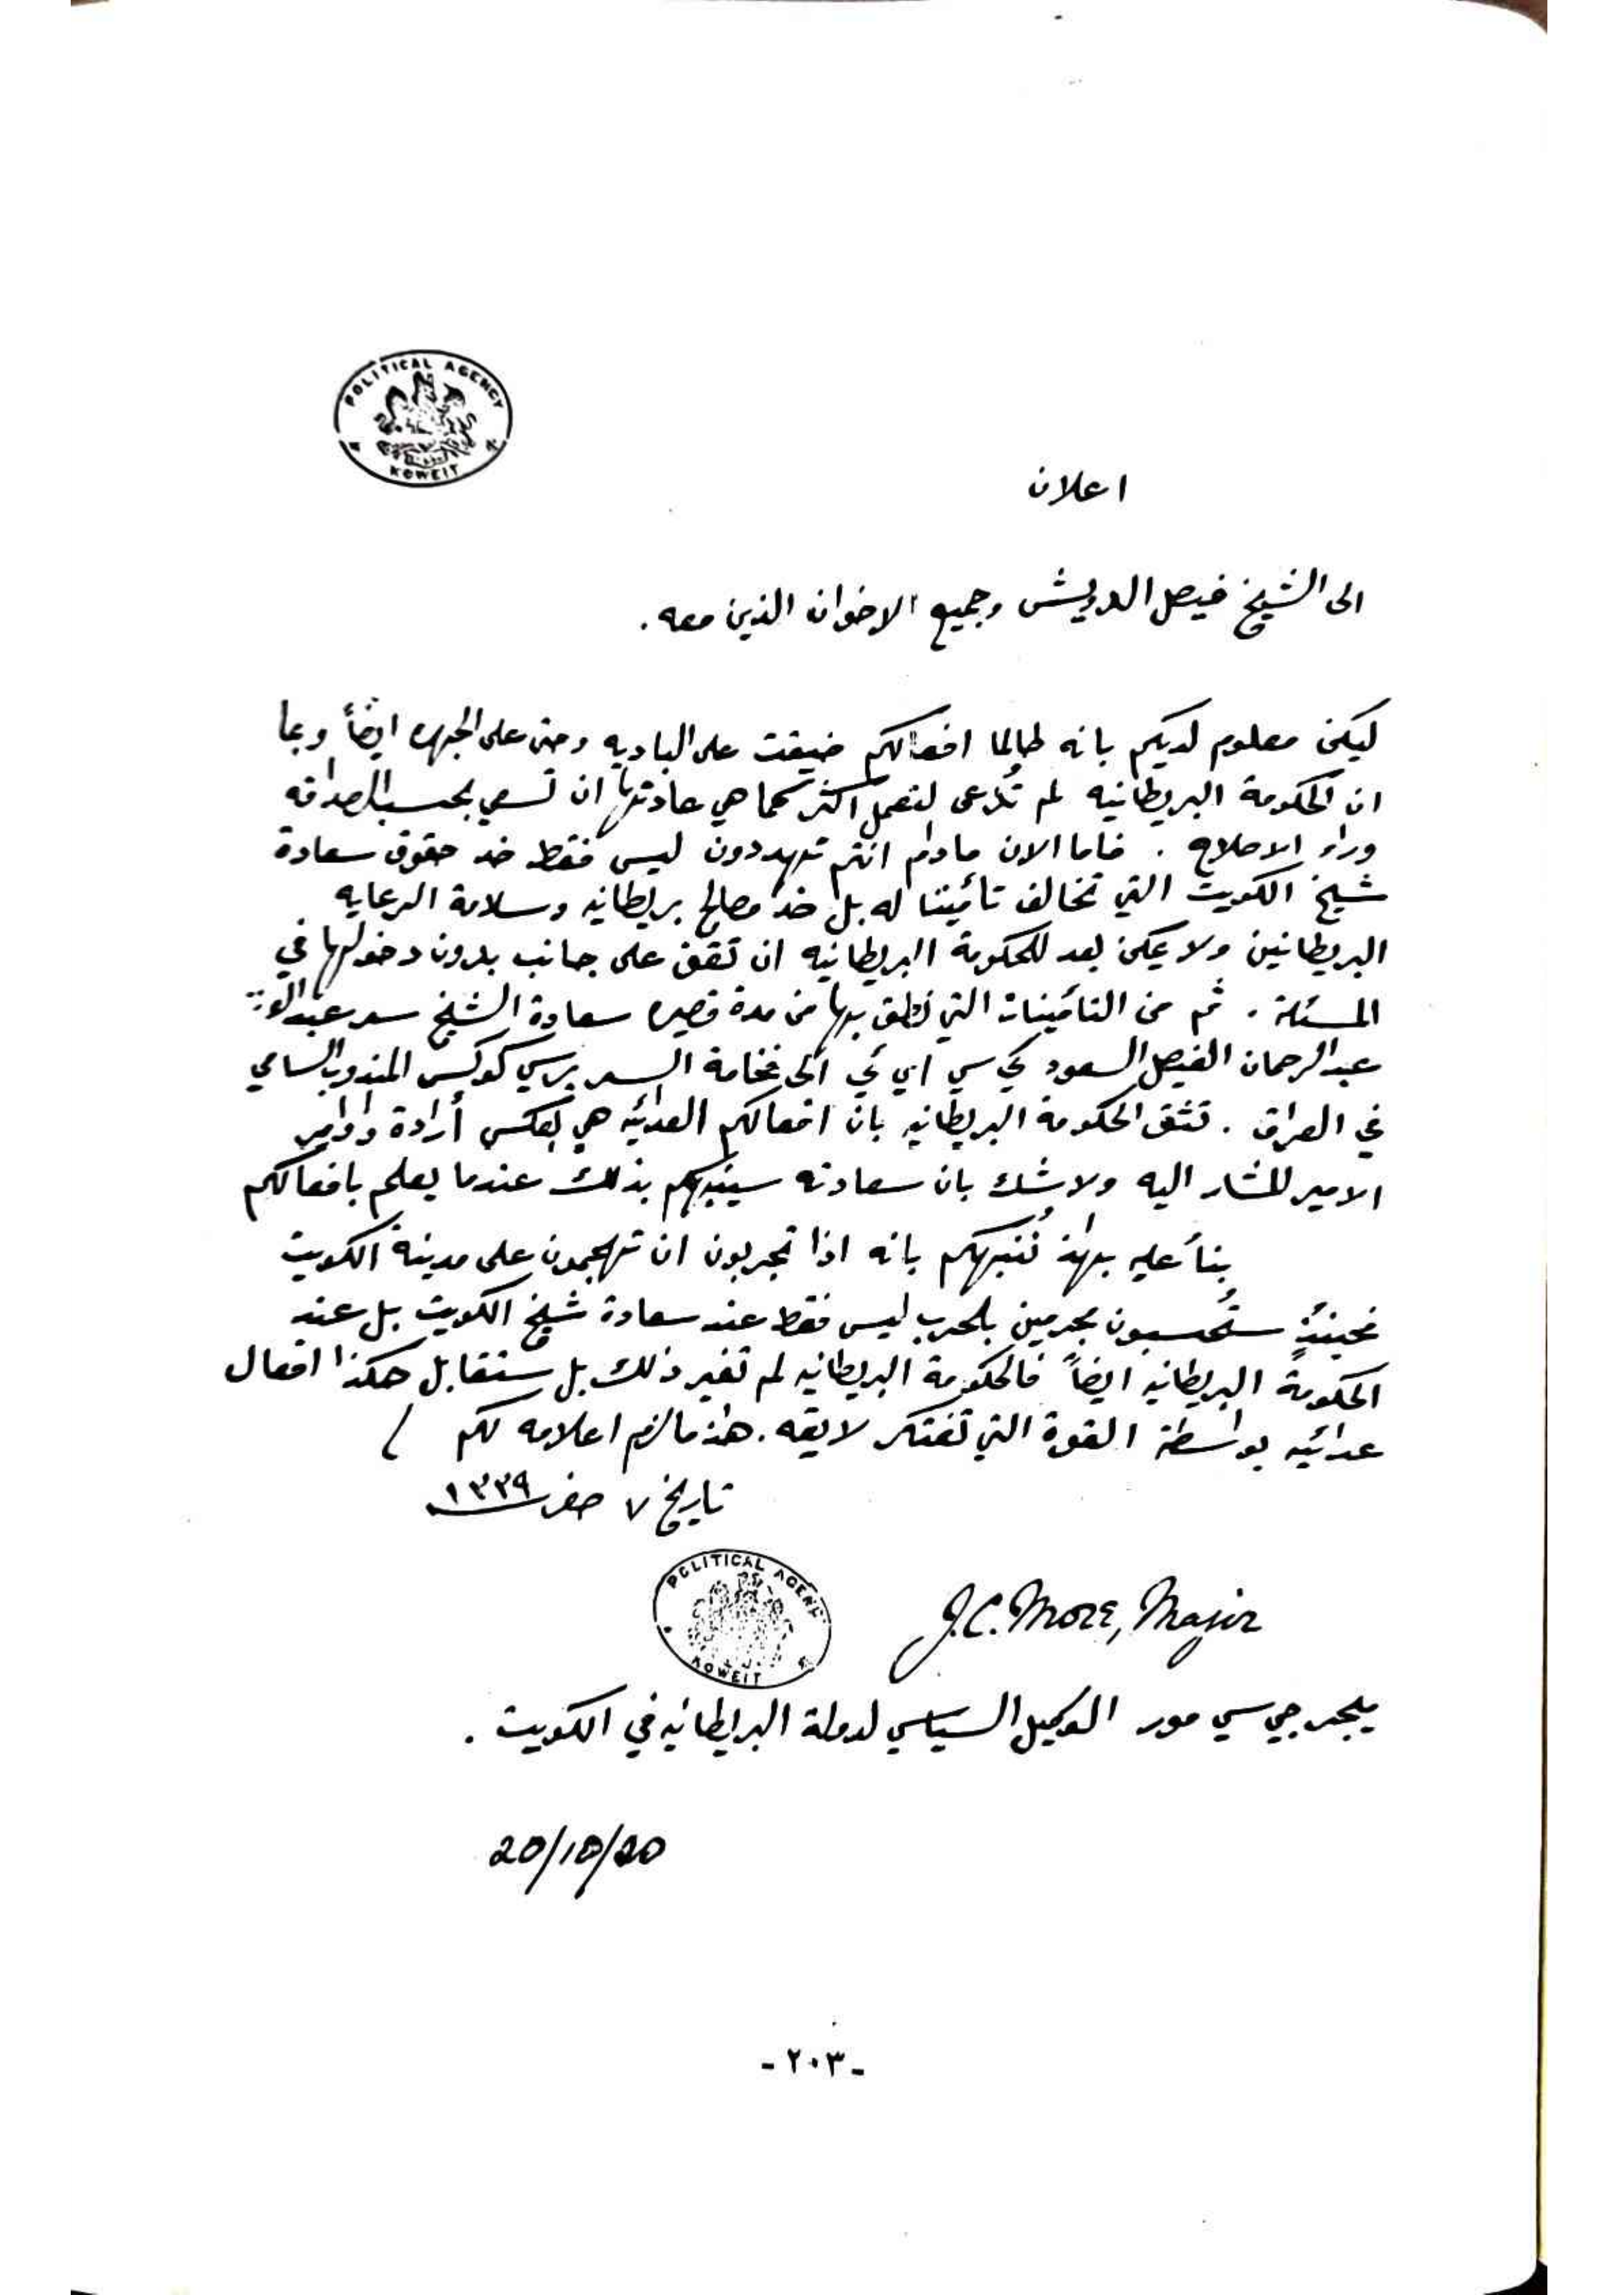 POLITICAL AGENCY
KOWEIT
اعلان
الى الشيخ فيصل الدويش وجميع الاخوان الذين معه .
ليكن معلوم لديكم بانه طالما افعالكم ضيقت على الباديه وحتى على الجهره ايضاً وبما
ان الحكومة البريطانيه لم تُدعى لتعمل اكثر كما هي عادتها ان تسعى بحسب الصداقه
وراء الاصلاح . فاما الان مادام انتم تهددون ليس فقط ضد حقوق سعادة
شيخ الكويت التي تخالف تأميننا له بل ضد مصالح بريطانيه وسلامة الرعايه
البريطانين ولا يمكن بعد للحكومة البريطانيه ان تقف على جانب بدون دخولها في
المسئلة . ثم من التأمينات التي نطق بها من مدة قصيره سعادة الشيخ سر عبد العزيز
عبد الرحمان الفيصل السعود كي سي اي ئي الى فخامة السر برسي كوكس المندوب السامي
في العراق . تثق الحكومة البريطانيه بان افعالكم العدائيه هي بعكس أرادة واوامر
الامير المشار اليه ولاشك بان سعادته سينبهكم بذلك عندما يعلم بافعالكم
بنأ عليه بهذا نُنبهكم بانه اذا تجربون ان تهجمون على مدينة الكويت
فحينئذٍ ستُحسبون مجرمين بالحرب ليس فقط عند سعادة شيخ الكويت بل عند
الحكومة البريطانيه ايضاً فالحكومة البريطانيه لم تغير ذلك بل ستقابل هكذا افعال
عدائيه بواسطة القوة التي تفتكر لايقه . هذا مالزم اعلامه لكم /
تاريخ ٧ صفر ١٣٣٩
POLITICAL AGENCY
KOWEIT
J.C. More, Major
ميجر جي سي مور الوكيل السياسي لدولة البرايطانيه في الكويت .
20/10/20
- ٢٠٣ -